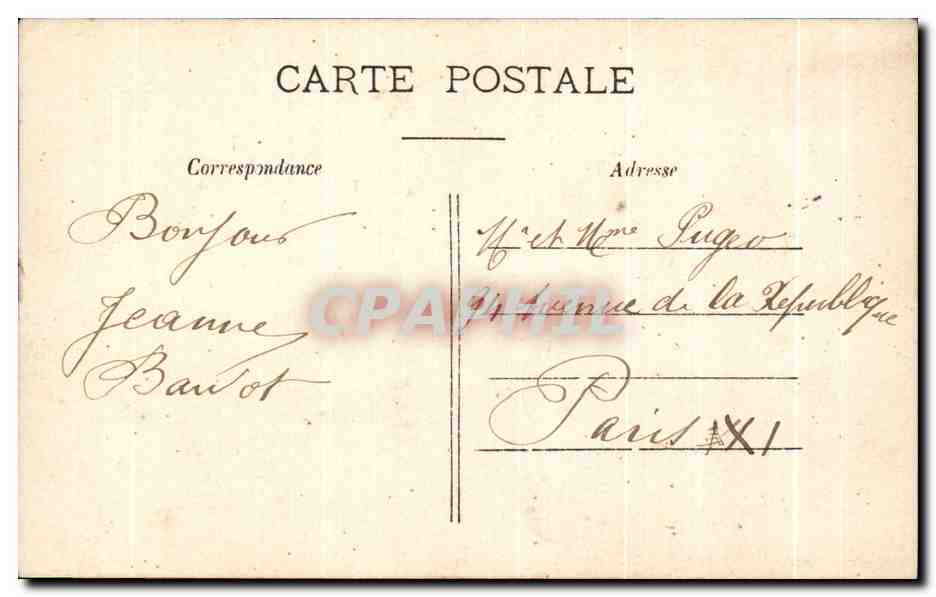 CARTE POSTALE
Correspondance
Adresse
Bonjour
Jeanne
Mr et Mme
94 Avenue de la République
Paris XI
CPAPHIL